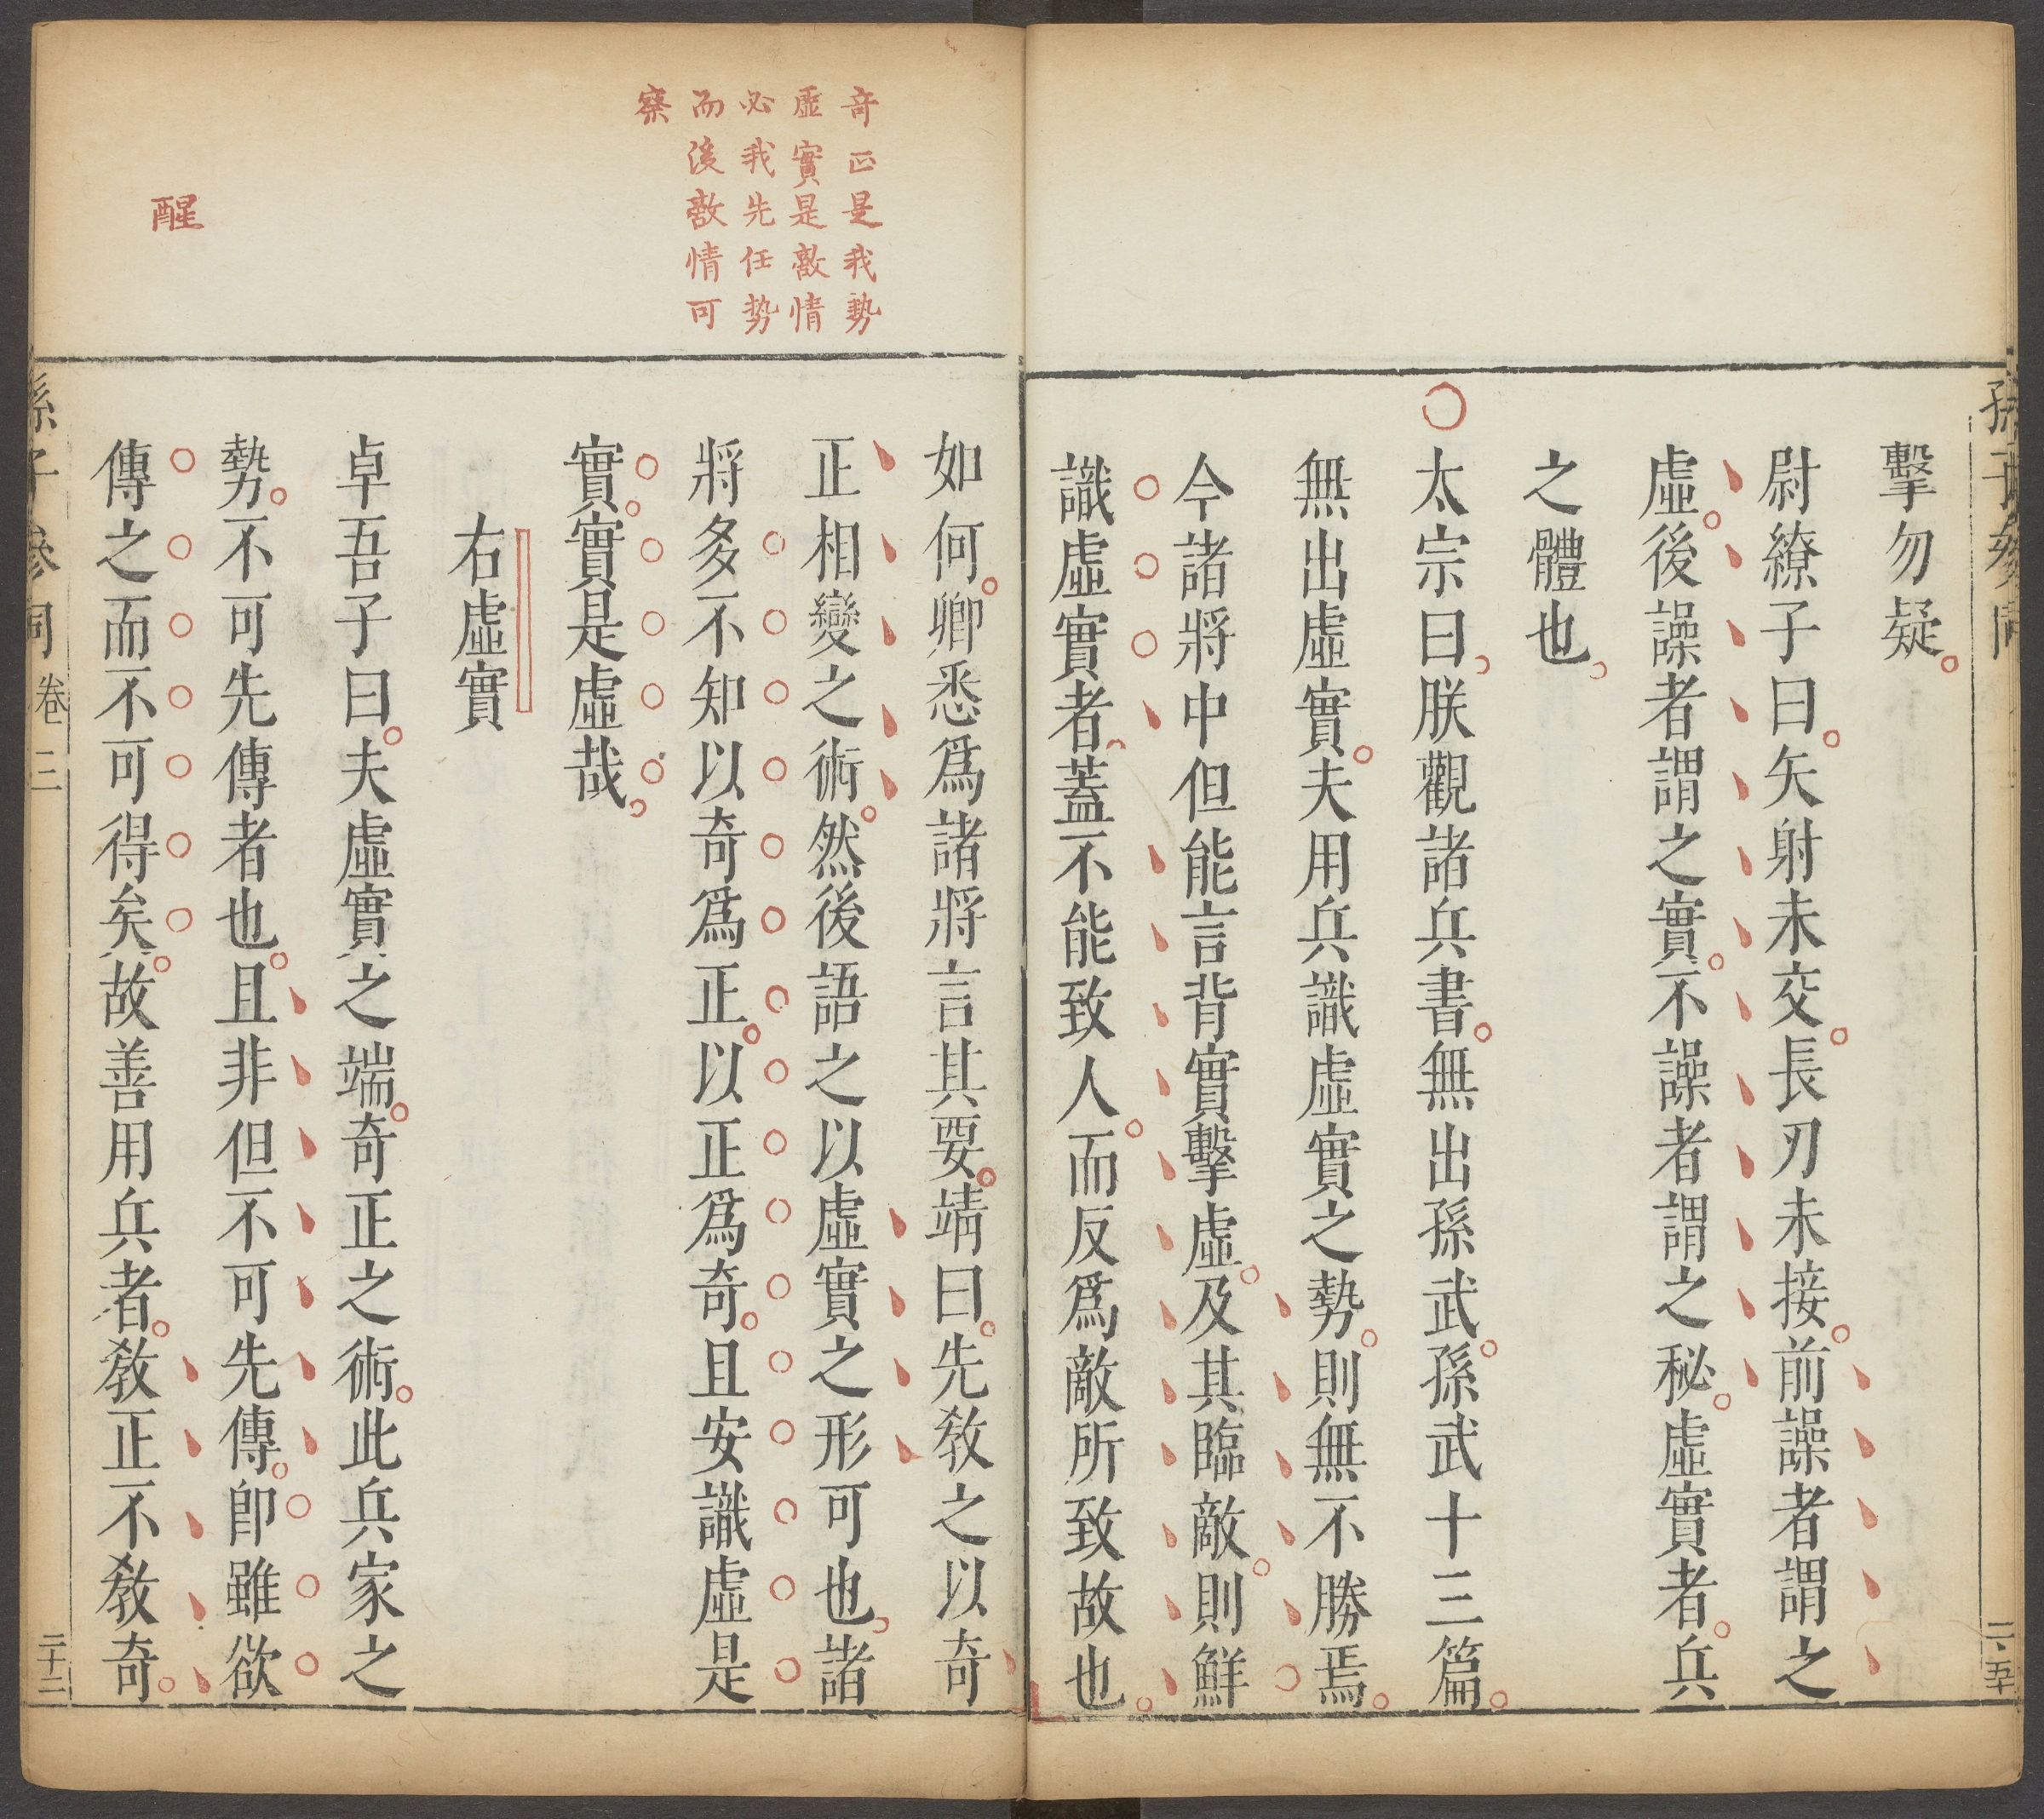 孫子參同
擊勿疑。
尉繚子曰。矢射未交。長刃未接。前譟者謂之
虛。後譟者謂之實。不譟者謂之秘。虛實者。兵
之體也。
○太宗曰。朕觀諸兵書。無出孫武。孫武十三篇。
無出虛實。夫用兵識虛實之勢。則無不勝焉。
今諸將中但能言背實擊虛。及其臨敵。則鮮
識虛實者。蓋不能致人。而反爲敵所致故也。
奇正是我勢
虛實是敵情
必我先任勢
而後敵情可
察
醒
如何。卿悉爲諸將言其要。靖曰。先教之以奇
正相變之術。然後語之以虛實之形可也。諸
將多不知以奇爲正。以正爲奇。且安識虛是
實。實是虛哉。
右虛實
卓吾子曰。夫虛實之端。奇正之術。此兵家之
勢。不可先傳者也。且非但不可先傳。卽雖欲
傳之而不可得矣。故善用兵者。教正不教奇。
孫子參同 卷三
二十二